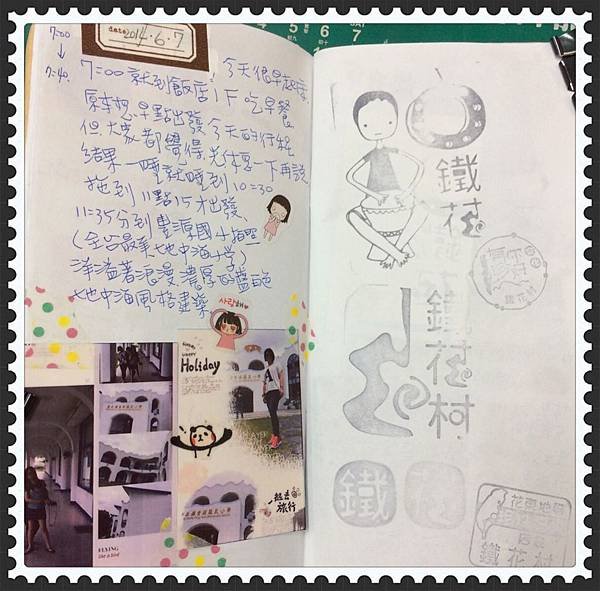 7:00
↓
7:40
date 2014.6.7
今天很早起床,
7:00就到飯店1F吃早餐
原本想早點出發
但大家都覺得今天的行程
先休息一下再說
結果一睡就睡到10:30
拖到11點15才出發、
11:35分到豐源國小拍照
(全台最美地中海小學)
洋溢著浪漫濃厚的藍白色
地中海風格建築
사랑해
HAPPY
Holiday
一起去
旅行
FLYING
like a bird
鐵花
鐵花村
鐵花村
鐵
花
鐵花村